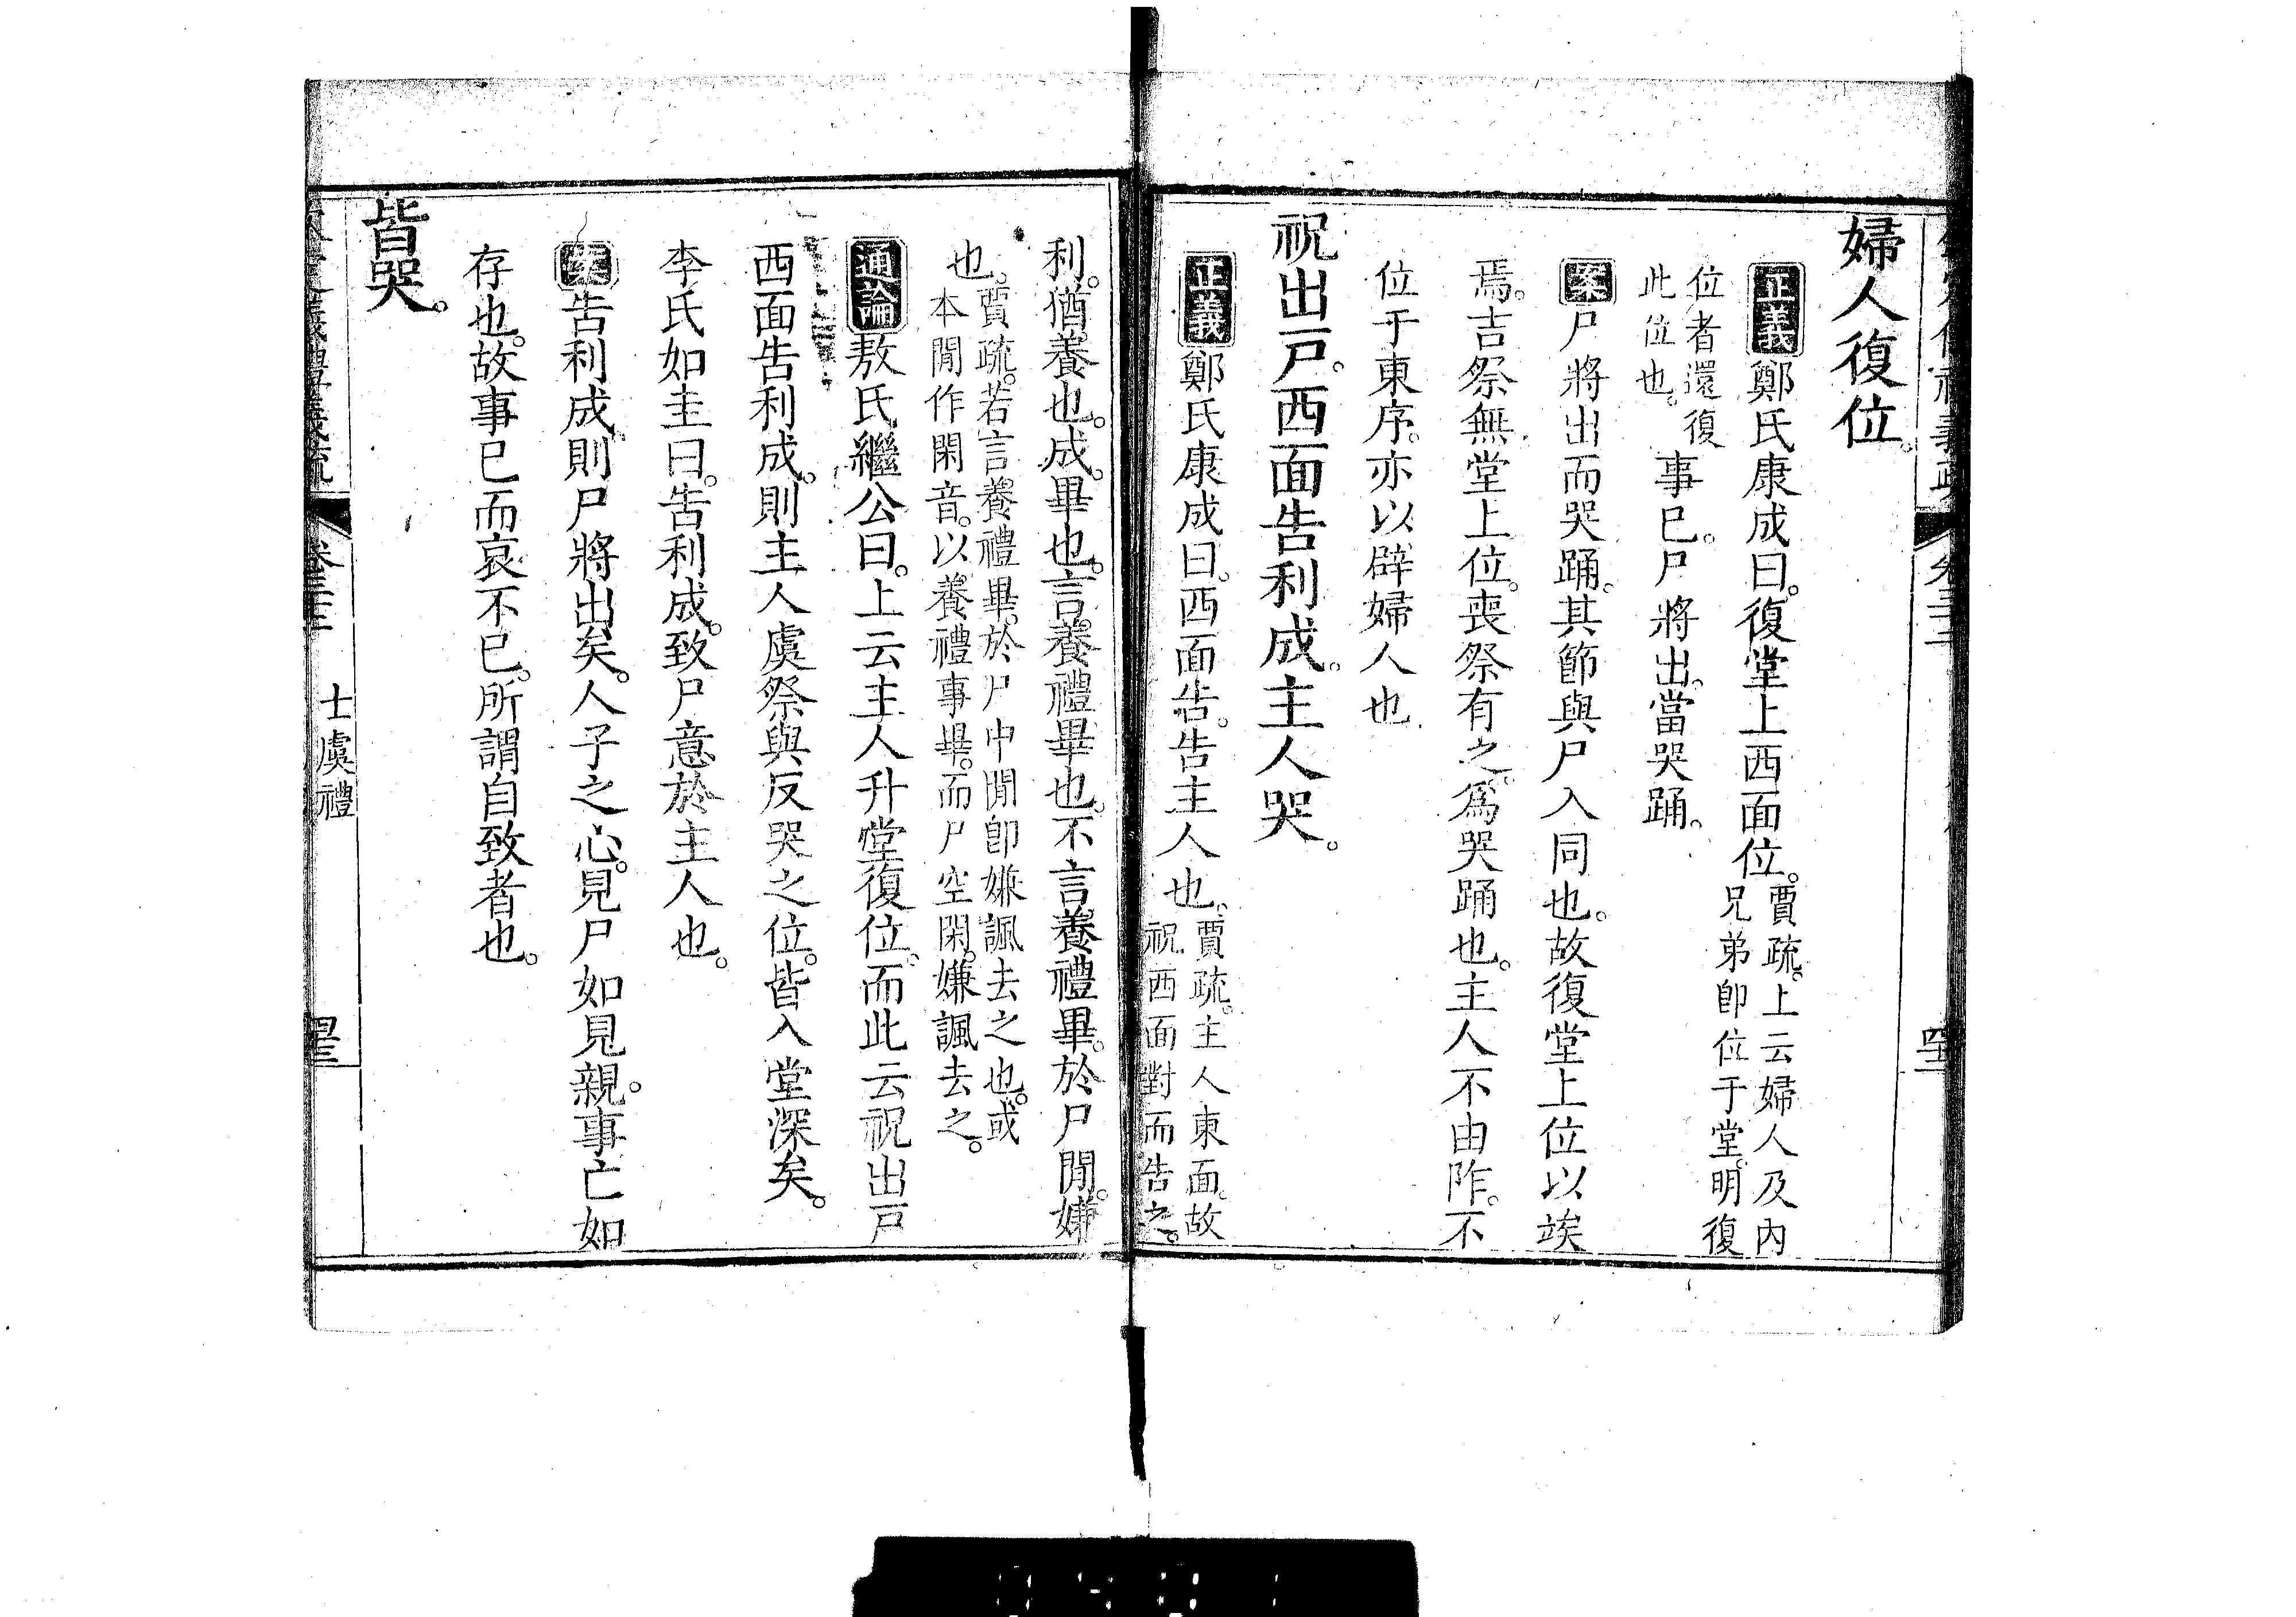 婦人復位。
正義鄭氏康成曰。復堂上西面位。賈疏。上云婦人及內
兄弟卽位于堂。明復
位者還復
此位也。事已。尸將出。當哭踊。
案尸將出而哭踊。其節與尸入同也。故復堂上位以竢
焉。吉祭無堂上位。喪祭有之。爲哭踊也。主人不由阼。不
位于東序。亦以辟婦人也
祝出戶。西面告利成。主人哭。
正義鄭氏康成曰。西面告。告主人也。賈疏。主人東面。故
祝西面對而告之。
利。猶養也。成。畢也。言養禮畢也。不言養禮畢。於尸閒。嫌
也。賈疏。若言養禮畢。於尸中閒卽嫌諷去之也。或
本閒作閑音。以養禮事畢。而尸空閑。嫌諷去之。
通論敖氏繼公曰。上云主人升堂復位。而此云祝出戶
西面告利成。則主人虞祭與反哭之位。皆入堂深矣。
李氏如圭曰。告利成。致尸意於主人也。
案告利成。則尸將出矣。人子之心。見尸如見親。事亡如
存也。故事已而哀不已。所謂自致者也。
皆哭。
義禮義疏 卷三十三 士虞禮